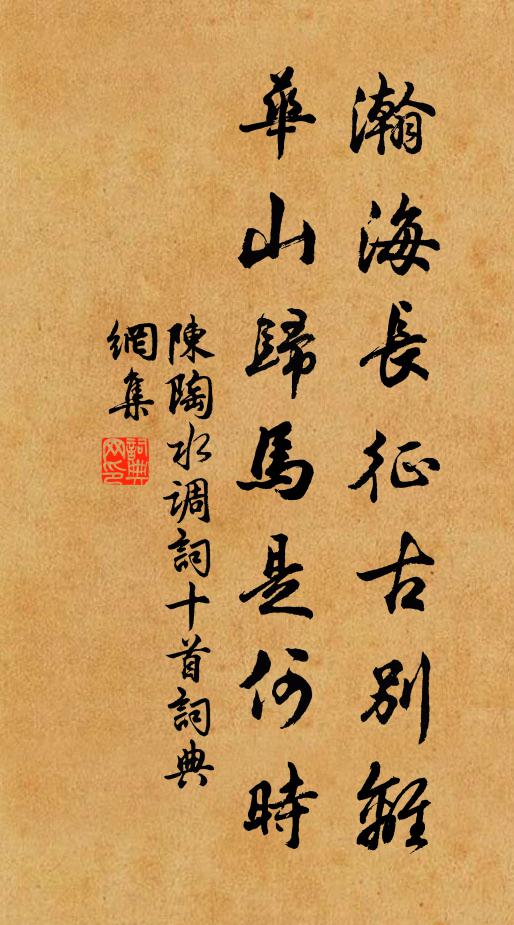 瀚海長征古別離
華山歸馬是何時
陳陶水调詞十首詞典
網集
詞典网印